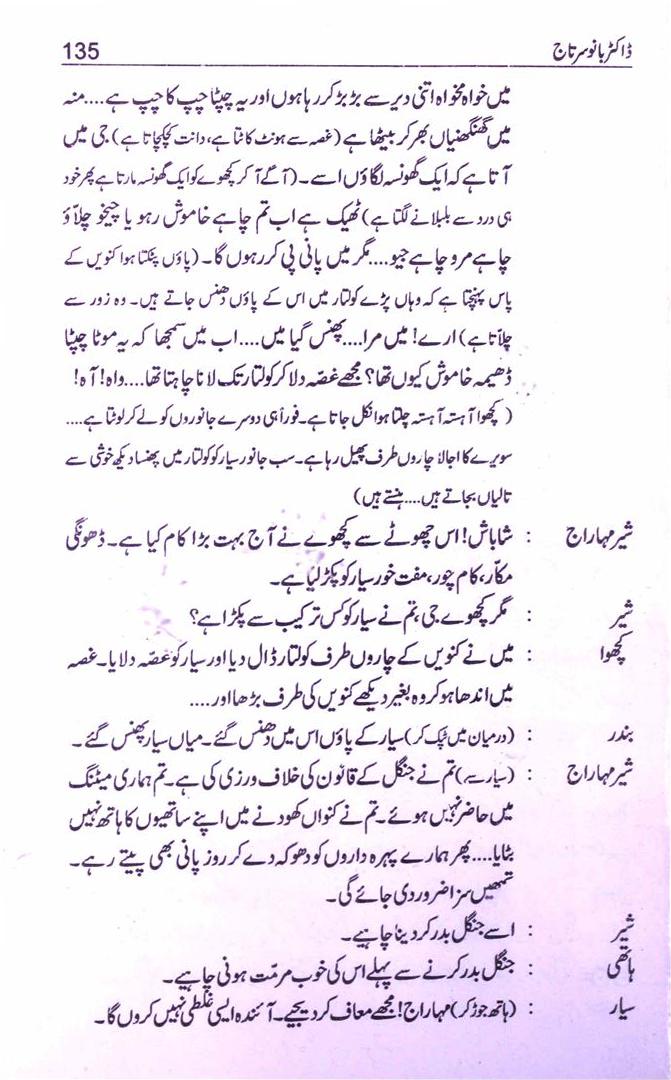 ڈاکٹر بانو سرتاج 135
میں خواہ مخواہ اتنی دیر سے بڑ بڑ کر رہا ہوں اور یہ چپٹا چپ کا چپ ہے ....منہ
میں گھنگھنیاں بھر کر بیٹھا ہے (غصہ سے ہونٹ کاٹتا ہے، دانت کچکچاتا ہے) جی میں
آتا ہے کہ ایک گھونسہ لگاؤں اسے۔ (آگے آ کر کچھوے کو ایک گھونسہ مارتا ہے پھر خود
ہی درد سے بلبلانے لگتا ہے) ٹھیک ہے اب تم چاہے خاموش رہو یا چیخو چلّاؤ
چاہے مرو چاہے جیو....مگر میں پانی پی کر رہوں گا۔ (پاؤں پٹکتا ہوا کنویں کے
پاس پہنچتا ہے کہ وہاں پڑے کولتار میں اس کے پاؤں دھنس جاتے ہیں۔ وہ زور سے
چلّاتا ہے) ارے! میں مرا....پھنس گیا میں....اب میں سمجھا کہ یہ موٹا چپٹا
ڈھیمہ خاموش کیوں تھا؟ مجھے غصّہ دلا کر کولتار تک لانا چاہتا تھا....واہ! آہ!
( کچھوا آہستہ آہستہ چلتا ہوا نکل جاتا ہے۔ فوراً ہی دوسرے جانوروں کو لے کر لوٹتا ہے....
سویرے کا اجالا چاروں طرف پھیل رہا ہے۔ سب جانور سیار کو کولتار میں پھنسا دیکھ خوشی سے
تالیاں بجاتے ہیں....ہنستے ہیں)
شیر مہاراج : شاباش! اس چھوٹے سے کچھوے نے آج بہت بڑا کام کیا ہے۔ ڈھونگی
مکّار، کام چور، مفت خور سیار کو پکڑ لیا ہے۔
شیر : مگر کچھوے جی، تم نے سیار کو کس ترکیب سے پکڑا ہے؟
کچھوا : میں نے کنویں کے چاروں طرف کولتار ڈال دیا اور سیار کو غصّہ دلایا۔ غصہ
میں اندھا ہو کر وہ بغیر دیکھے کنویں کی طرف بڑھا اور....
بندر : (درمیان میں ٹپک کر) سیار کے پاؤں اس میں دھنس گئے۔ میاں سیار پھنس گئے۔
شیر مہاراج : (سیار سے) تم نے جنگل کے قانون کی خلاف ورزی کی ہے۔ تم ہماری میٹنگ
میں حاضر نہیں ہوئے۔ تم نے کنواں کھودنے میں اپنے ساتھیوں کا ہاتھ نہیں
بٹایا.... پھر ہمارے پہرہ داروں کو دھوکہ دے کر روز پانی بھی پیتے رہے۔
تمھیں سزا ضرور دی جائے گی۔
شیر : اسے جنگل بدر کر دینا چاہیے۔
ہاتھی : جنگل بدر کرنے سے پہلے اس کی خوب مرمّت ہونی چاہیے۔
سیار : (ہاتھ جوڑ کر) مہاراج! مجھے معاف کر دیجیے۔ آئندہ ایسی غلطی نہیں کروں گا۔